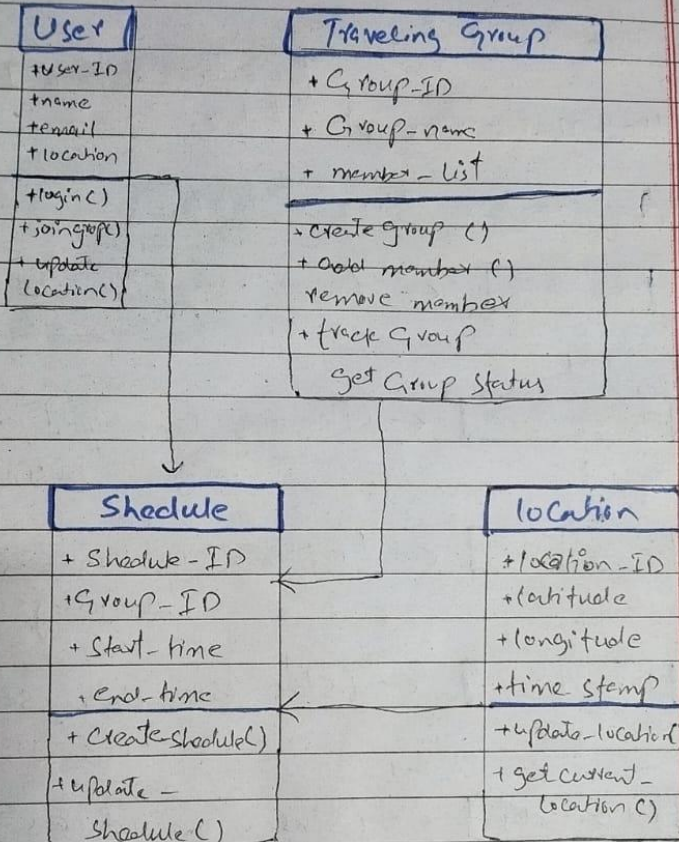 User
+User-ID
+name
+email
+location
+login()
+joingrop()
+update
location()
Traveling Group
+ Group-ID
+ Group-name
+ member-list
+ create group ()
+ add member ()
remove member
+ track Group
Get Group Status
Shedule
+ Shedule-ID
+Group-ID
+ Start-time
+ end-time
+ Create-shedule()
+ update-
Shedule()
location
+location-ID
+latitude
+longitude
+time stamp
+update-location(
+ get current-
location ()